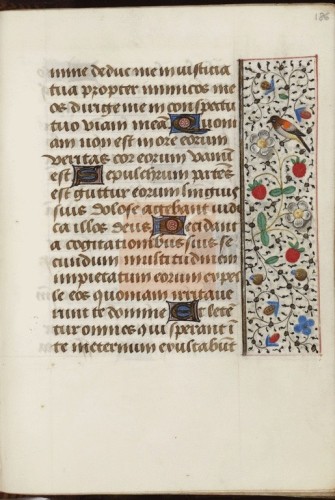 186
mine deduc me in iusticia
tua propter inimicos me
os dirige me in conspectu
tuo viam meā Quoni
am non est in ore eorum
veritas cor eorum vanū
est Sepulchrum patēs
est guttur eorum linguis
suis dolose agebant iudi
ca illos deus Decidant
a cogitationibus suis se
cundum multitudinem
impietatum eorum expel
le eos quoniam irritaue
runt te domine Et leten
tur omnes qui sperant ī
te in eternum exultabūt